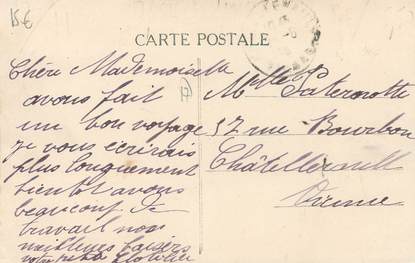 15€
CARTE POSTALE
Chère Mademoiselle
avons fait
un bon voyage
je vous écrirais
plus longuement
bientot avons
beaucoup de
travail nos
meilleurs baisers
votre petite
Mlle Paternotte
57 rue Bourbon
Châtellerault
Vienne